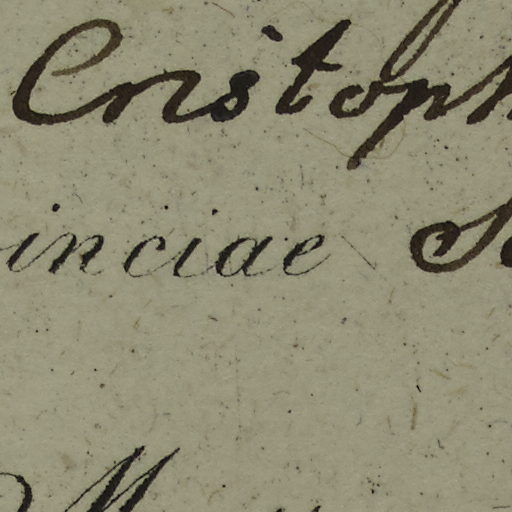 Cristoph
inciae S
M